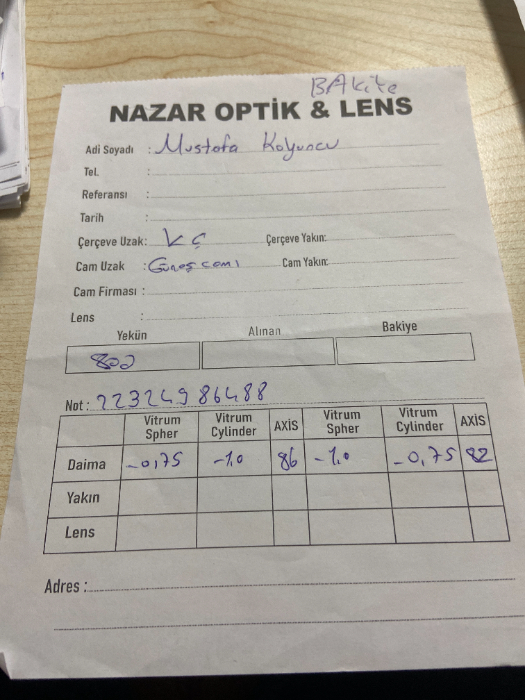 BAkite
NAZAR OPTİK & LENS
Adi Soyadı : Mustafa Koyuncu
Tel. :
Referansı :
Tarih :
Çerçeve Uzak: KÇ Çerçeve Yakın:
Cam Uzak : Güneş camı Cam Yakın:
Cam Firması :
Lens :
Yekün Alınan Bakiye
800
Not : 22324986488
Vitrum Spher Vitrum Cylinder AXİS Vitrum Spher Vitrum Cylinder AXİS
Daima -0,75 -1,0 86 -1,0 -0,75 82
Yakın
Lens
Adres :